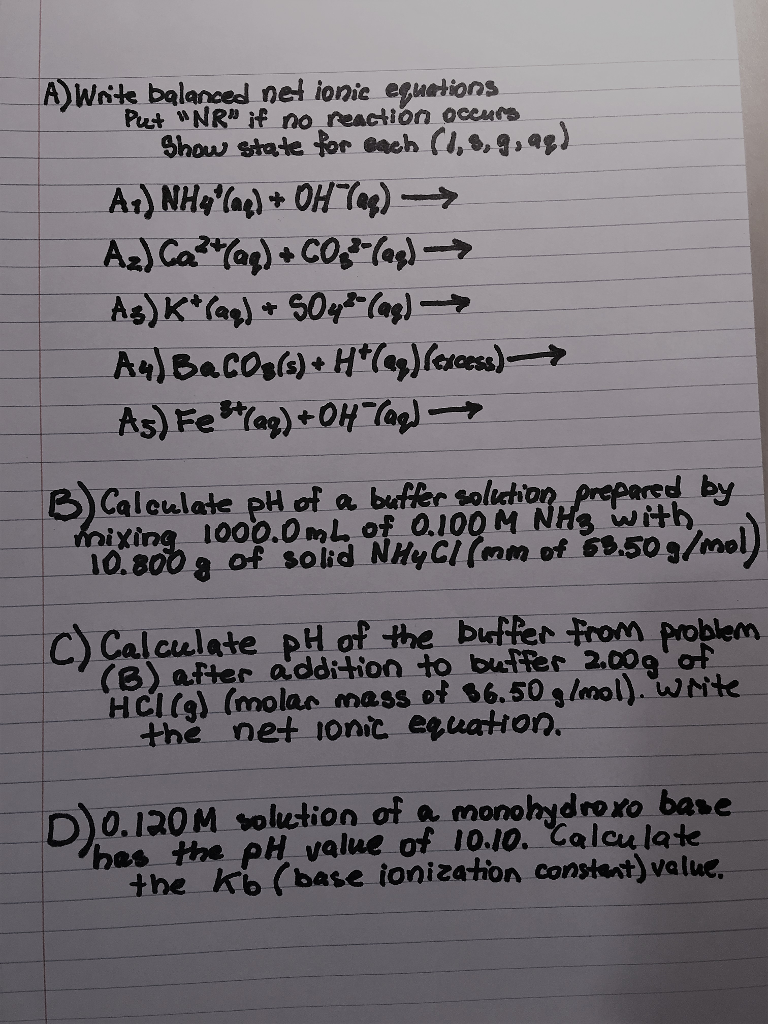 A) Write balanced net ionic equations
Put "NR" if no reaction occurs
Show state for each (l, s, g, aq)
A₁) NH₄⁺(aq) + OH⁻(aq) →
A₂) Ca²⁺(aq) + CO₃²⁻(aq) →
A₃) K⁺(aq) + SO₄²⁻(aq) →
A₄) BaCO₃(s) + H⁺(aq) (excess) →
A₅) Fe³⁺(aq) + OH⁻(aq) →
B) Calculate pH of a buffer solution prepared by
mixing 1000.0 mL of 0.100 M NH₃ with
10.800 g of solid NH₄Cl (mm of 53.50 g/mol)
C) Calculate pH of the buffer from problem
(B) after addition to buffer 2.00g of
HCl(g) (molar mass of 36.50 g/mol). Write
the net ionic equation.
D) 0.120M solution of a monohydroxo base
has the pH value of 10.10. Calculate
the Kb (base ionization constant) value.